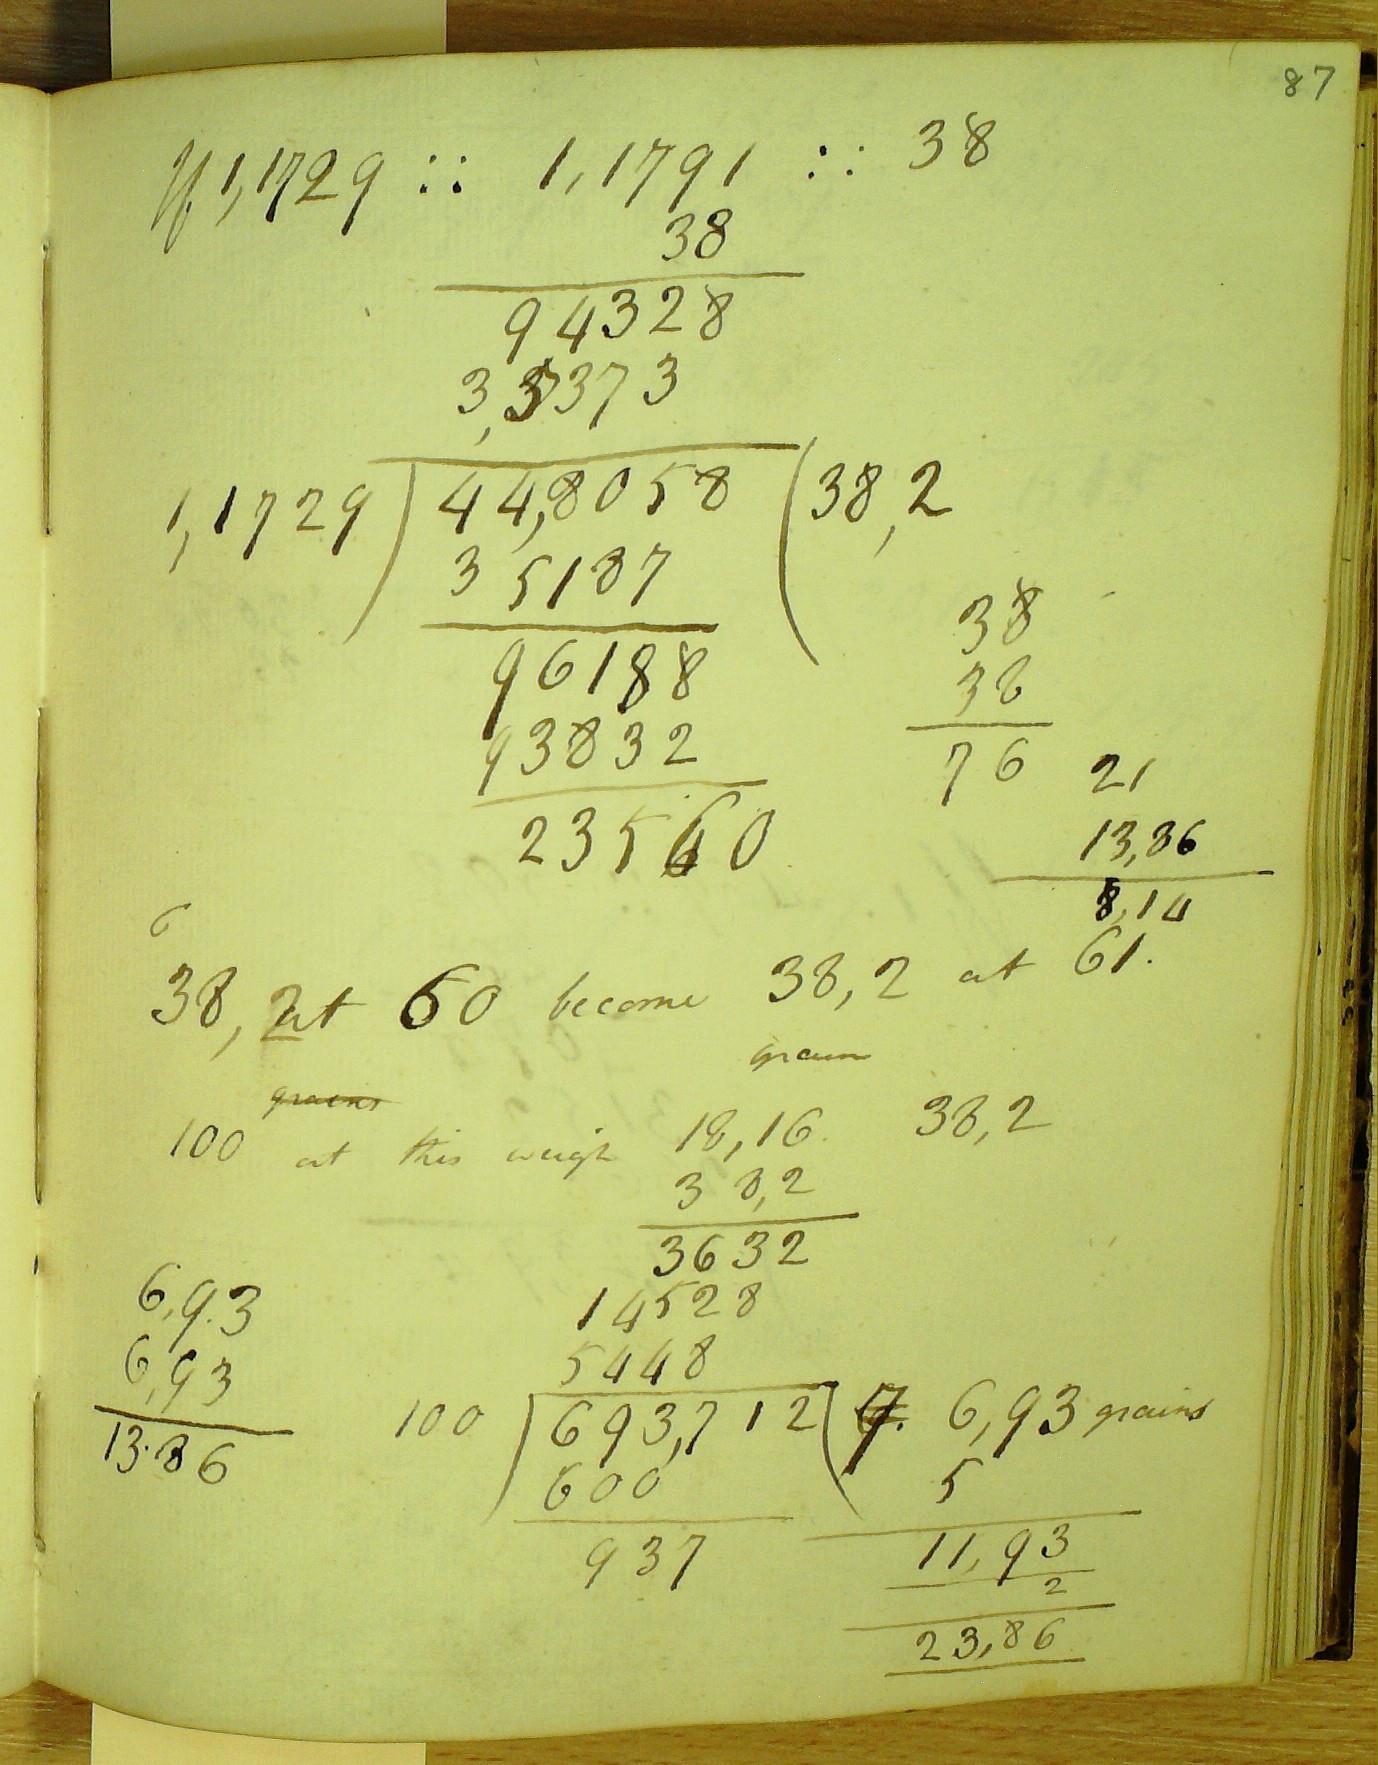 87
If 1,1729 :: 1,1791 :: 38
38
94328
3,5373
1,1729) 44,8058 (38,2
35187
96188
93832
23560
38
38
76
21
13,86
8,14
6
38, at 60 become 38,2 at 61.
grains
grains
100 at this weigh 18,16. 38,2
38,2
3632
14528
5448
100) 693,712 ( 6,93 grains
600
937
5
11,93
2
23,86
6,93
6,93
13.86